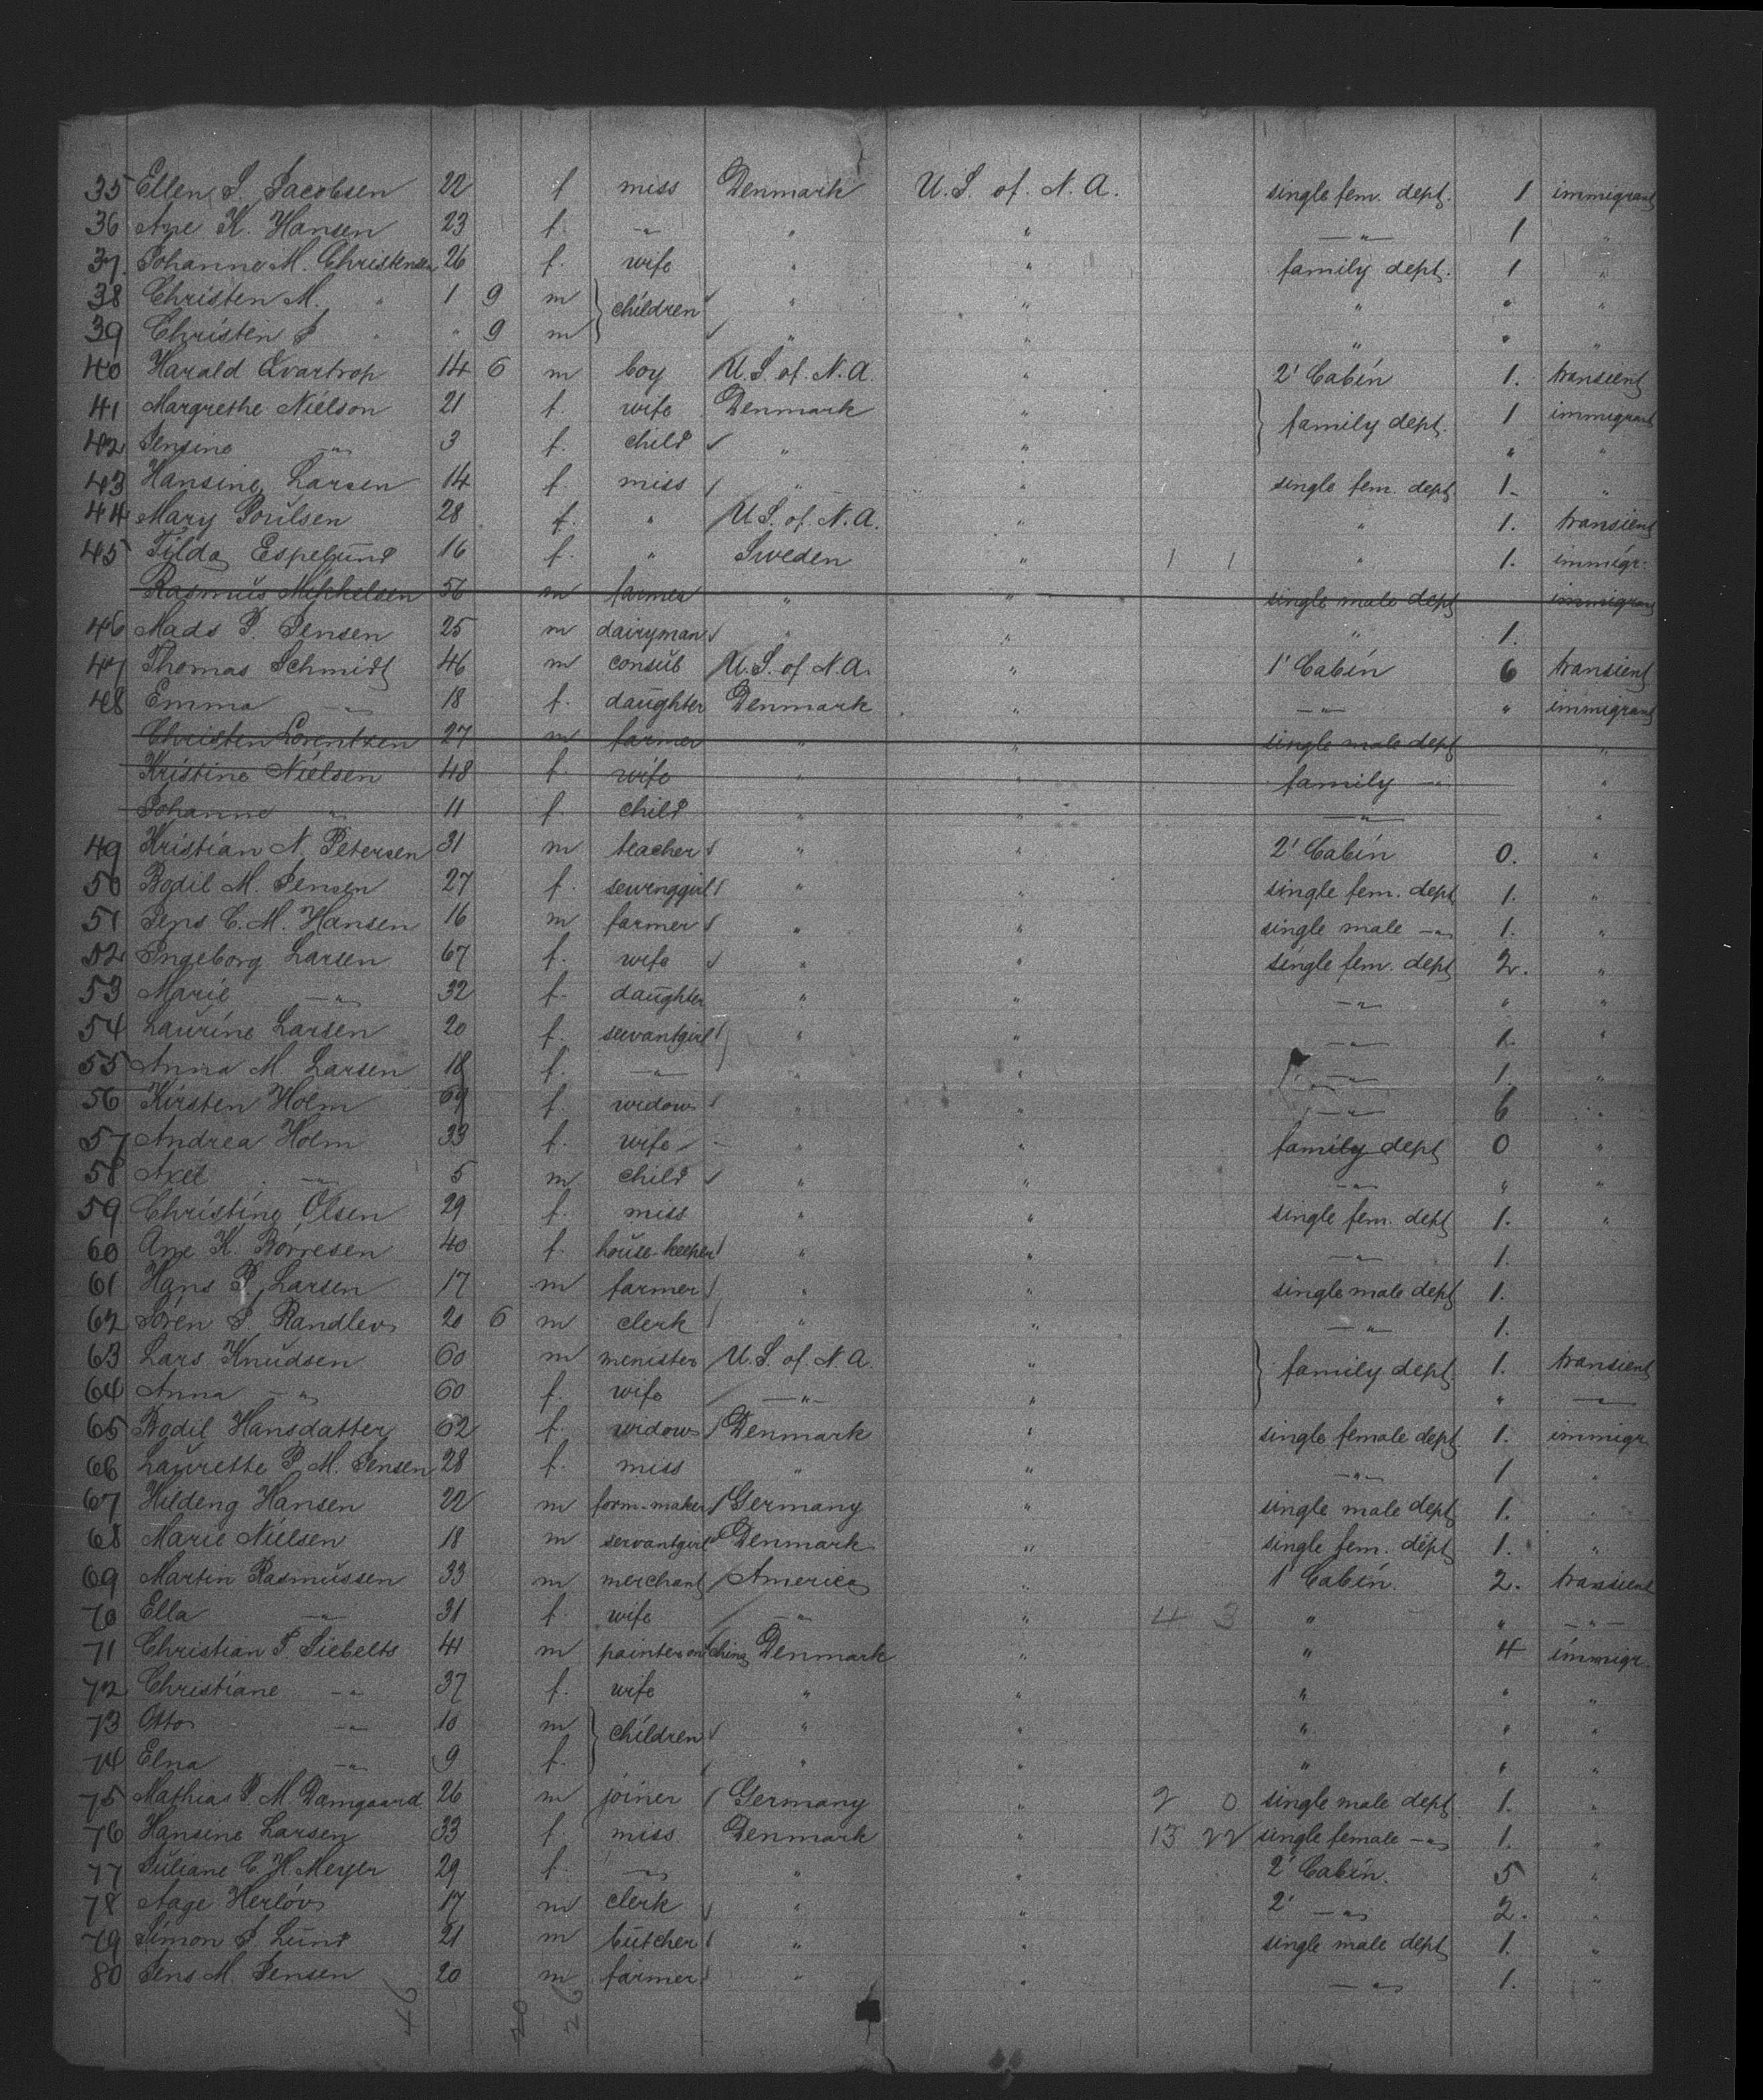 35 Ellen J. Jacobsen 22 f miss Denmark U.S. of N.A. single fem. dept. 1 immigrant
36 Ane K. Hansen 23 f. —"— " " —"— 1 "
37. Johanne M. Christensen 26 f. wife " " family dept. 1 "
38 Christen M. " 1 9 m } children " " " " "
39 Christen J " " 9 m " " " " "
40 Harald Qvartrop 14 6 m boy U.S. of N.A. " 2' Cabin 1. transient
41 Margrethe Nielson 21 f. wife Denmark } family dept. 1 immigrant
42 Jensine —"— 3 f. child " " " "
43 Hansine Larsen 14 f. miss " " single fem. dept 1- "
44 Mary Poulsen 28 f. " U.S. of N.A. " " 1. transient
45 Tilda Espelund 16 f. " Sweden " 1 1 " 1. immigr.
Rasmus Mikkelsen 56 m farmer " " single male dept immigrant
46 Mads P. Jensen 25 m dairyman " " " 1.
47 Thomas Schmidt 46 m consul U.S. of N.A. " 1' Cabin 6 transient
48 Emma —"— 18 f. daughter Denmark " —"— " immigrant
Christen Lorentzen 27 m farmer " " single male dept "
Kristine Nielsen 48 f. wife " " family —"— "
Johanne " 11 f. child " " —"— "
49 Kristian N. Petersen 31 m teacher " " 2' Cabin 0. "
50 Bodil M. Jensen 27 f. sewinggirl " " single fem. dept 1. "
51 Jens C. M. Hansen 16 m farmer " " single male —"— 1. "
52 Ingeborg Larsen 67 f. wife " " single fem. dept 2. "
53 Marie —"— 32 f. daughter " " —"— " "
54 Laurine Larsen 20 f. servantgirl " " —"— 1. "
55 Anna M. Larsen 18 f. —"— " " —"— 1. "
56 Kirsten Holm 69 f. widow " " —"— 6 "
57 Andrea Holm 33 f. wife " " family dept 0 "
58 Axel —"— 5 m child " " —"— " "
59 Christine Olsen 29 f. miss " " single fem. dept 1. "
60 Ane K. Borresen 40 f. house-keeper " " —"— 1.
61 Hans P. Larsen 17 m farmer " " single male dept 1.
62 Sören P. Randlev 20 6 m clerk " " —"— 1.
63 Lars Knudsen 60 m menister U.S. of N.A. " } family dept 1. transient
64 Anna —"— 60 f. wife —"— " " —"—
65 Bodil Hansdatter 62 f. widow Denmark " single female dept 1. immigr.
66 Laurette P. M. Jensen 28 f. miss " " —"— 1 "
67 Hildeng Hansen 22 m form-maker Germany " single male dept 1. "
68 Marie Nielsen 18 m servantgirl Denmark " single fem. dept 1. "
69 Martin Rasmussen 33 m merchant America " 1' Cabin. 2. transient
70 Ella —"— 31 f. wife —"— " 4 3 " " —"—
71 Christian P Siebelts 41 m painter on china Denmark " " 4 immigr.
72 Christiane —"— 37 f. wife " " " " "
73 Otto —"— 10 m } children " " " " "
74 Elna —"— 9 f. " " " " "
75 Mathias P. M. Damgaard 26 m joiner Germany " 2 0 single male dept 1. "
76 Hansine Larsen 33 f. miss Denmark " 13 22 single female —"— 1. "
77 Juliane C. H. Meyer 29 f. —"— " " 2' Cabin. 5 "
78 Aage Herlöv 17 m clerk " " 2' —"— 2. "
79 Simon P. Lund 21 m butcher " " single male dept 1. "
80 Jens M. Jensen 20 m farmer " " —"— 1. "
46 20 26